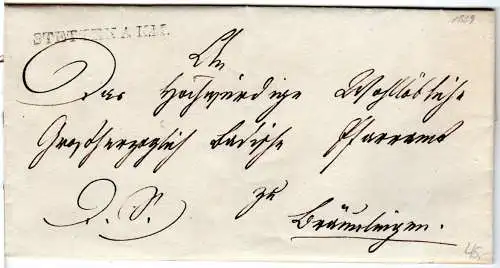 1829
STETTEN A.K.M.
An
Das Hochwürdige Wohllöbliche
Großherzoglich Badische Pfarramt
D. S. zu
Bräunlingen.
45,-